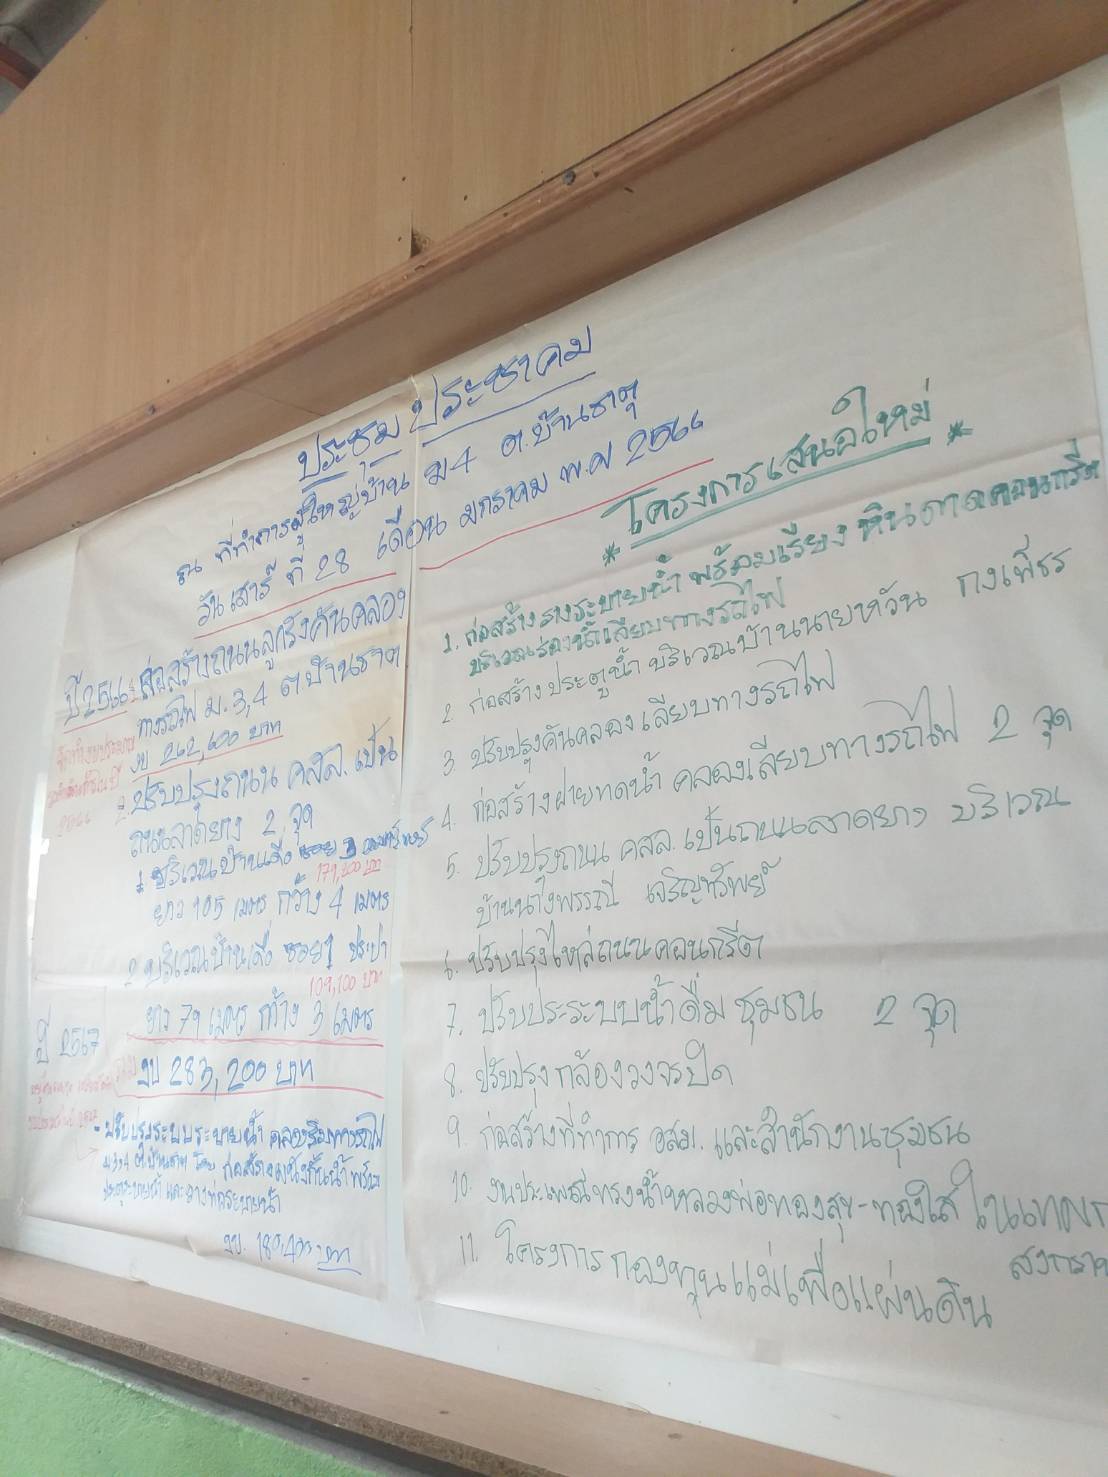 ประชุมประชาคม
ณ ที่ทำการผู้ใหญ่บ้าน ม4 ต.บ้านธาตุ
วันเสาร์ ที่ 28 เดือน มกราคม พ.ศ 2566
ปี 2566 ก่อสร้างถนนลูกรังคันคลอง
ทางรถไฟ ม.3,4 ต.บ้านธาตุ
งบ 262,600 บาท
2. ปรับปรุงถนน คสล. เป็น
ถนนลาดยาง 2 จุด
1. บริเวณบ้านเดื่อ ซอย 3
179,100 บาท
ยาว 105 เมตร กว้าง 4 เมตร
2 บริเวณบ้านเดื่อ ซอย 1 ประปา
109,100 บาท
ยาว 79 เมตร กว้าง 3 เมตร
รวม งบ 283,200 บาท
ปี 2567
- ปรับปรุงระบบระบายน้ำ คลองริมทางรถไฟ
ม3,4 ต.บ้านธาตุ โดย ก่อสร้างผนังกั้นน้ำพร้อม
ประตูระบายน้ำ และวางท่อระบายน้ำ
งบ.
* โครงการเสนอใหม่ *
1. ก่อสร้างรางระบายน้ำ พร้อมเรียงหินดาดคอนกรีต
บริเวณร่องน้ำเลียบทางรถไฟ
2 ก่อสร้างประตูน้ำ บริเวณบ้านนายหวัน กงเพ็ชร
3. ปรับปรุงคันคลองเลียบทางรถไฟ
4. ก่อสร้างฝายทดน้ำ คลองเลียบทางรถไฟ 2 จุด
5. ปรับปรุงถนน คสล. เป็นถนนลาดยาง บริเวณ
บ้านนางพรรณี เจริญทรัพย์
6. ปรับปรุงไหล่ถนนคอนกรีต
7. ปรับปรุงระบบน้ำดื่มชุมชน 2 จุด
8. ปรับปรุงกล้องวงจรปิด
9. ก่อสร้างที่ทำการ อสม. และสำนักงานชุมชน
10. งานประเพณีสรงน้ำหลวงพ่อทองสุข-ทองใส ในเทศกาล
สงกรานต์
11. โครงการกองทุนแม่เพื่อแผ่นดิน